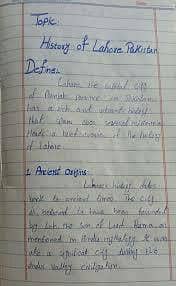 Topic:
History of Lahore Pakistan
Define:
Lahore the cultural city
of Punjab province in Pakistan
has a rich and vibrant history
that span over several millennia
Here's a brief overview of the history
of Lahore
1. Ancient Origins:
Lahore's history dates
back to ancient times. The city
is believed to have been founded
by Loh the son of Lord Rama, as
mentioned in Hindu mythology. It was
also a significant city during the
Indus valley civilization.